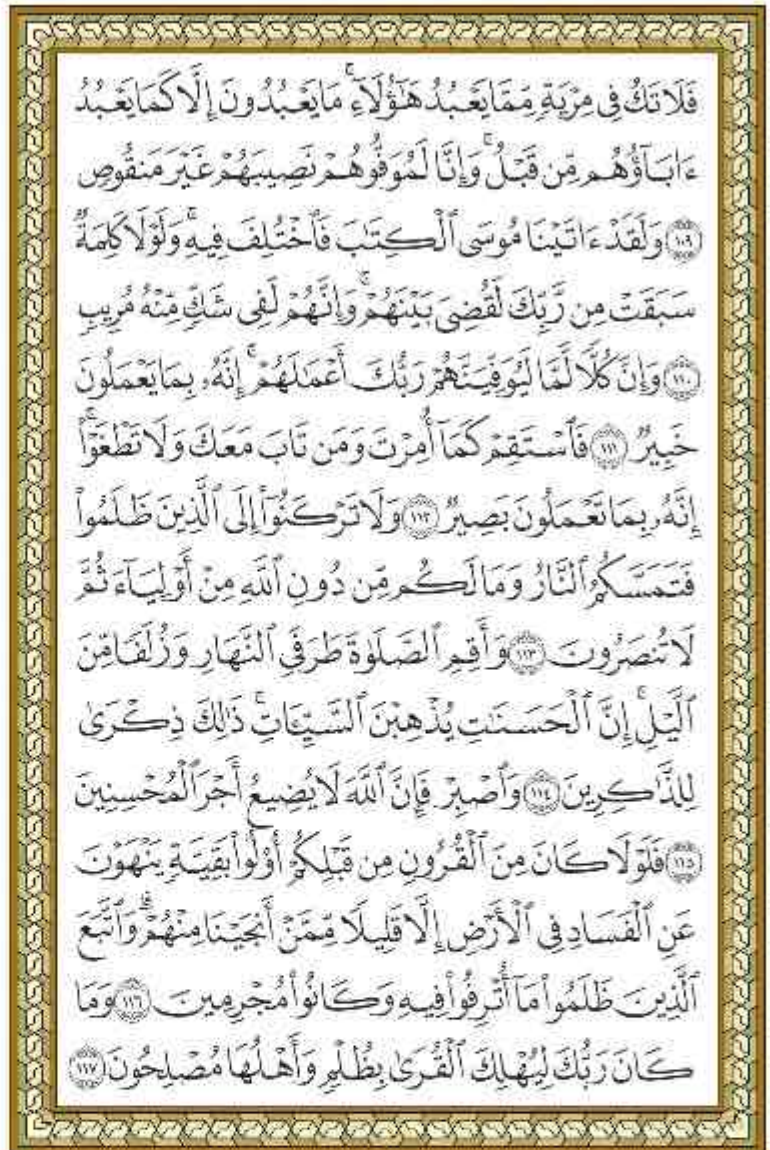 فَلَا تَكُ فِى مِرْيَةٍ مِّمَّا يَعْبُدُ هَـٰٓؤُلَآءِ ۚ مَا يَعْبُدُونَ إِلَّا كَمَا يَعْبُدُ
ءَابَآؤُهُم مِّن قَبْلُ ۚ وَإِنَّا لَمُوَفُّوهُمْ نَصِيبَهُمْ غَيْرَ مَنقُوصٍ
١٠٩ وَلَقَدْ ءَاتَيْنَا مُوسَى ٱلْكِتَـٰبَ فَٱخْتُلِفَ فِيهِ ۚ وَلَوْلَا كَلِمَةٌ
سَبَقَتْ مِن رَّبِّكَ لَقُضِىَ بَيْنَهُمْ ۚ وَإِنَّهُمْ لَفِى شَكٍّ مِّنْهُ مُرِيبٍ
١١٠ وَإِنَّ كُلًّا لَّمَّا لَيُوَفِّيَنَّهُمْ رَبُّكَ أَعْمَـٰلَهُمْ ۚ إِنَّهُۥ بِمَا يَعْمَلُونَ
خَبِيرٌ ١١١ فَٱسْتَقِمْ كَمَآ أُمِرْتَ وَمَن تَابَ مَعَكَ وَلَا تَطْغَوْا۟ ۚ
إِنَّهُۥ بِمَا تَعْمَلُونَ بَصِيرٌ ١١٢ وَلَا تَرْكَنُوٓا۟ إِلَى ٱلَّذِينَ ظَلَمُوا۟
فَتَمَسَّكُمُ ٱلنَّارُ وَمَا لَكُم مِّن دُونِ ٱللَّهِ مِنْ أَوْلِيَآءَ ثُمَّ
لَا تُنصَرُونَ ١١٣ وَأَقِمِ ٱلصَّلَوٰةَ طَرَفَىِ ٱلنَّهَارِ وَزُلَفًا مِّنَ
ٱلَّيْلِ ۚ إِنَّ ٱلْحَسَنَـٰتِ يُذْهِبْنَ ٱلسَّيِّـَٔاتِ ۚ ذَٰلِكَ ذِكْرَىٰ
لِلذَّٰكِرِينَ ١١٤ وَٱصْبِرْ فَإِنَّ ٱللَّهَ لَا يُضِيعُ أَجْرَ ٱلْمُحْسِنِينَ
١١٥ فَلَوْلَا كَانَ مِنَ ٱلْقُرُونِ مِن قَبْلِكُمْ أُو۟لُوا۟ بَقِيَّةٍ يَنْهَوْنَ
عَنِ ٱلْفَسَادِ فِى ٱلْأَرْضِ إِلَّا قَلِيلًا مِّمَّنْ أَنجَيْنَا مِنْهُمْ ۗ وَٱتَّبَعَ
ٱلَّذِينَ ظَلَمُوا۟ مَآ أُتْرِفُوا۟ فِيهِ وَكَانُوا۟ مُجْرِمِينَ ١١٦ وَمَا
كَانَ رَبُّكَ لِيُهْلِكَ ٱلْقُرَىٰ بِظُلْمٍ وَأَهْلُهَا مُصْلِحُونَ ١١٧